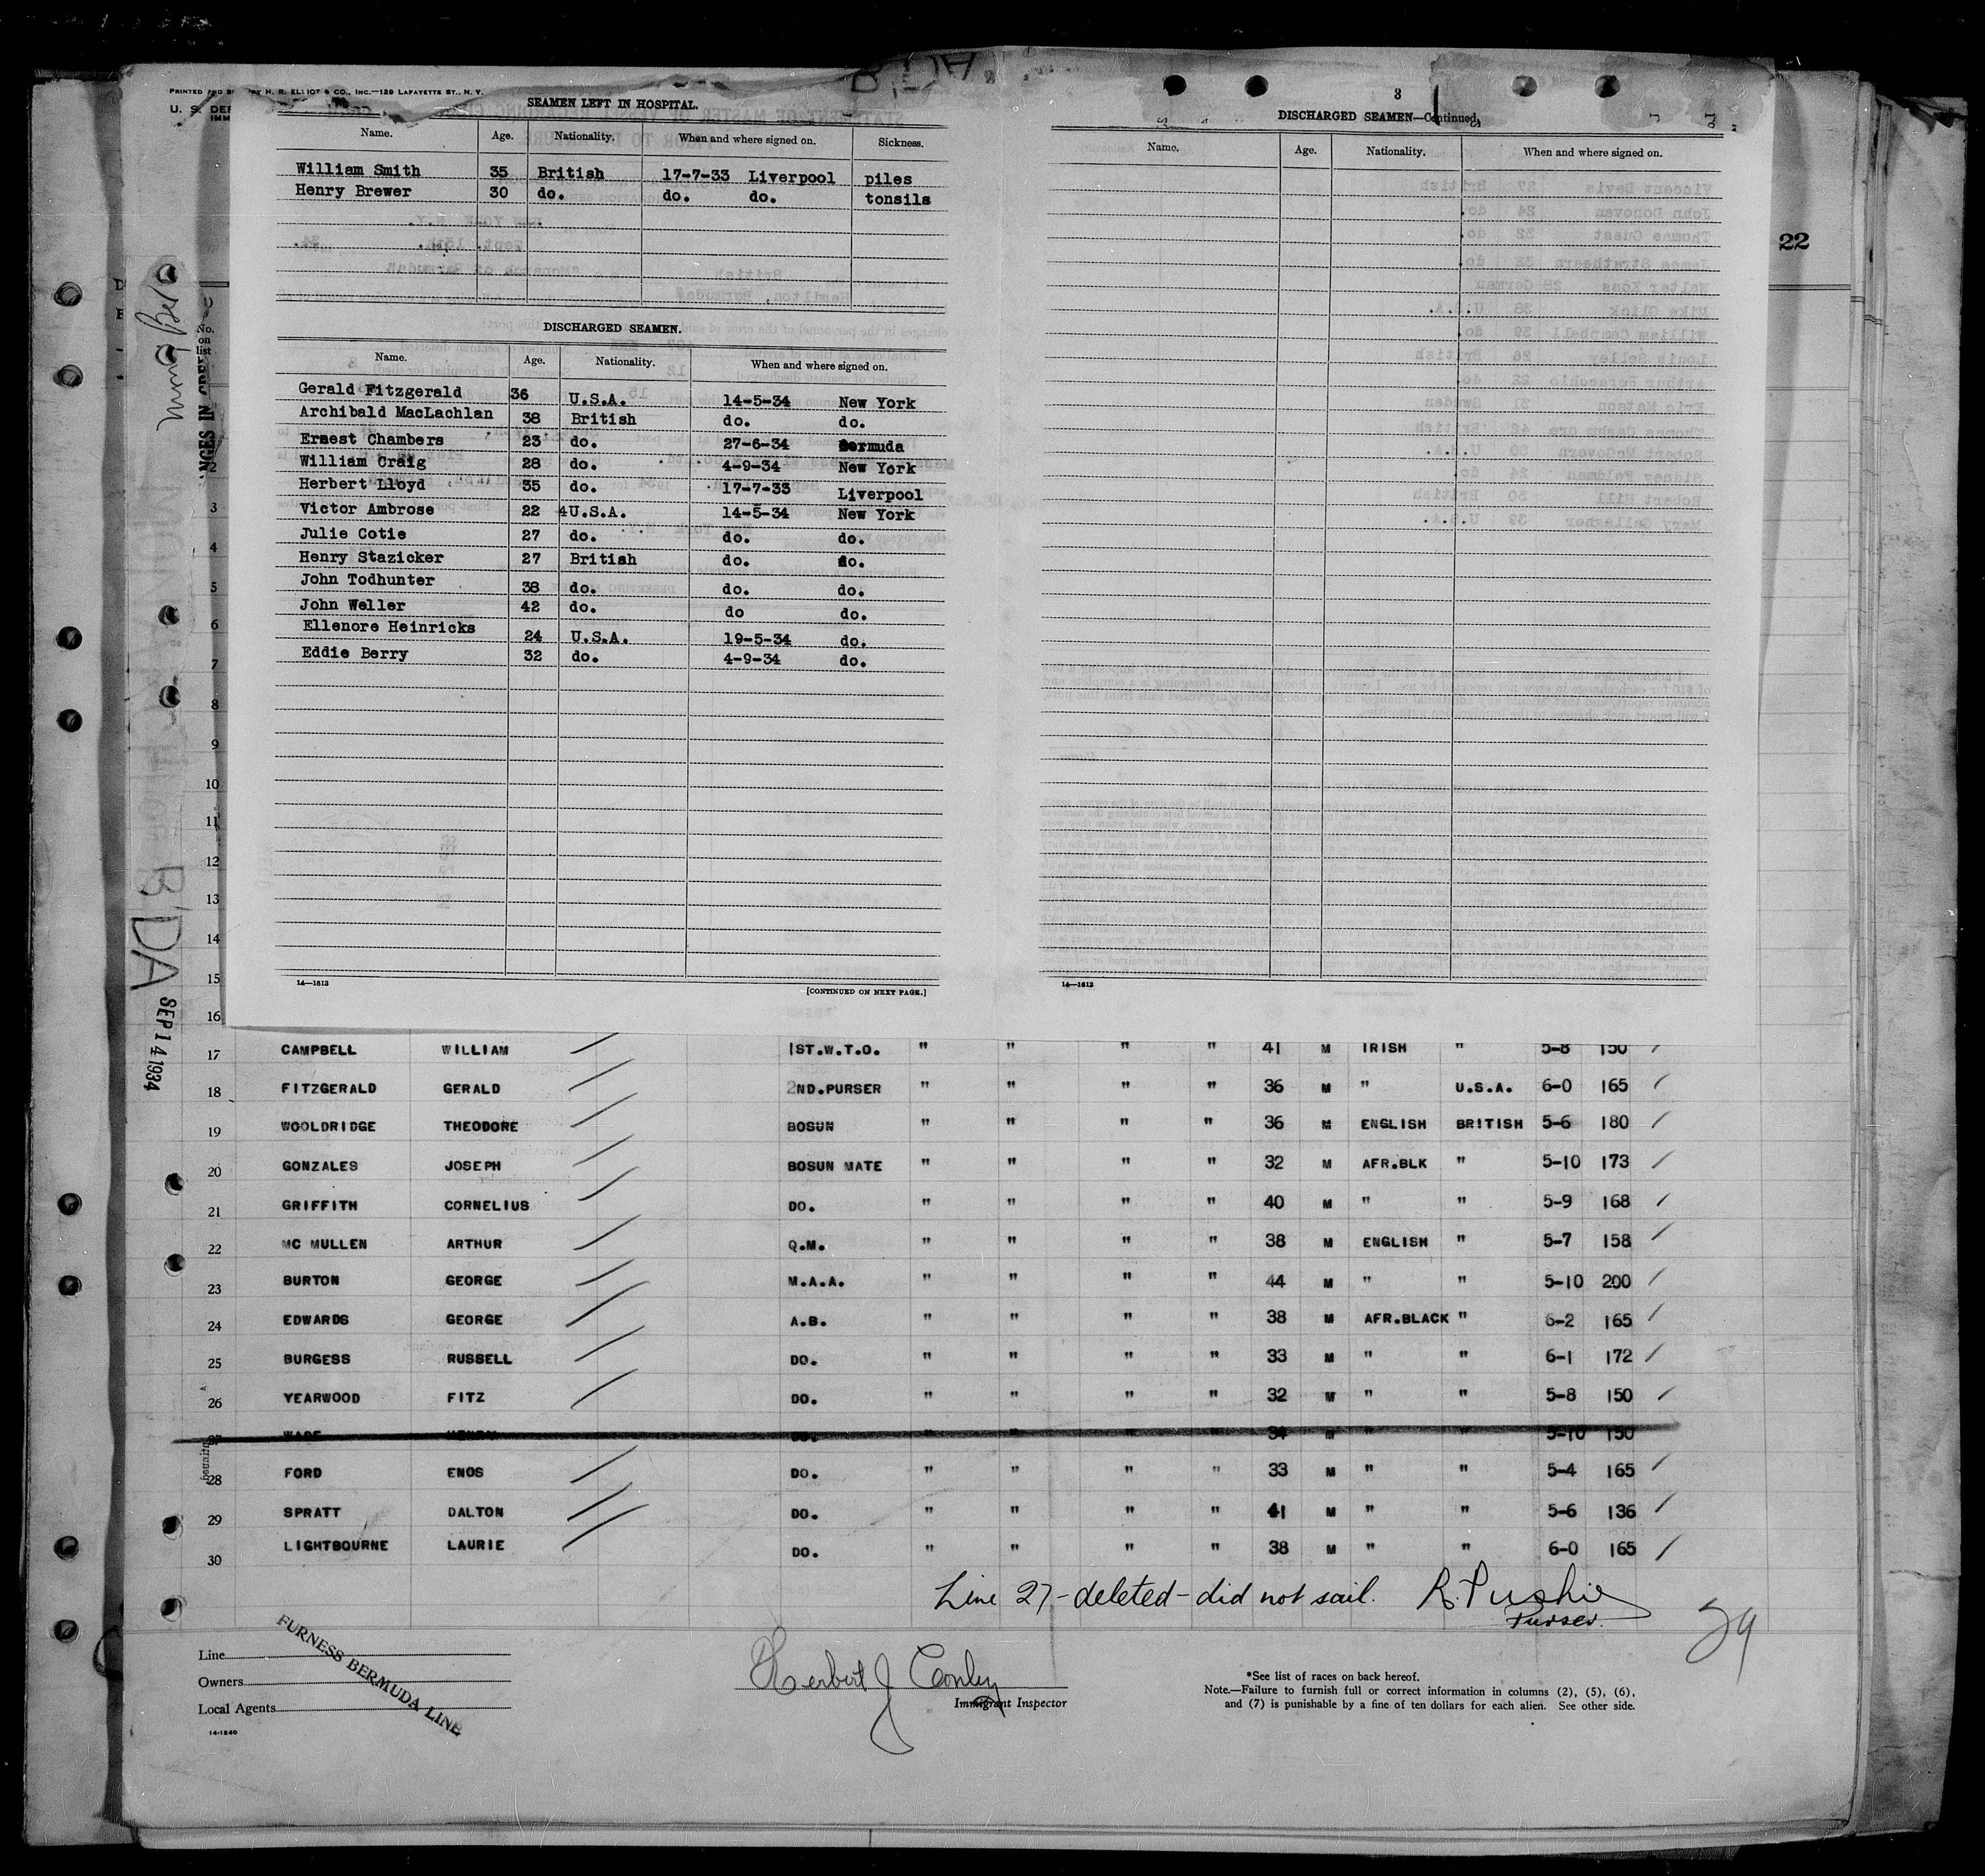 PRINTED AND
H. R. ELLIOT & CO., INC.—129 LAFAYETTE ST., N. Y.
B'DA
SEAMEN LEFT IN HOSPITAL.
Name. Age. Nationality. When and where signed on. Sickness.
William Smith 35 British 17-7-33 Liverpool piles
Henry Brewer 30 do. do. do. tonsils
DISCHARGED SEAMEN.
Name. Age. Nationality. When and where signed on.
Gerald Fitzgerald 36 U.S.A. 14-5-34 New York
Archibald MacLachlan 38 British do. do.
Ernest Chambers 23 do. 27-6-34 Bermuda
William Craig 28 do. 4-9-34 New York
Herbert Lloyd 35 do. 17-7-33 Liverpool
Victor Ambrose 22 U.S.A. 14-5-34 New York
Julie Cotie 27 do. do. do.
Henry Stazicker 27 British do. do.
John Todhunter 38 do. do. do.
John Weller 42 do. do do.
Ellenore Heinricks 24 U.S.A. 19-5-34 do.
Eddie Berry 32 do. 4-9-34 do.
14—1613
[CONTINUED ON NEXT PAGE.]
3
DISCHARGED SEAMEN—Continued.
Name. Age. Nationality. When and where signed on.
14—1613
22
No.
on
list
2
3
4
5
6
7
8
9
10
11
12
13
14
15
16
B'DA
SEP 14 1934
17 CAMPBELL WILLIAM 1ST.W.T.O. " " " " 41 M IRISH " 5-8 150
18 FITZGERALD GERALD 2ND.PURSER " " " " 36 M " U.S.A. 6-0 165
19 WOOLDRIDGE THEODORE BOSUN " " " " 36 M ENGLISH BRITISH 5-6 180
20 GONZALES JOSEPH BOSUN MATE " " " " 32 M AFR.BLK " 5-10 173
21 GRIFFITH CORNELIUS DO. " " " " 40 M " " 5-9 168
22 MC MULLEN ARTHUR Q.M. " " " " 38 M ENGLISH " 5-7 158
23 BURTON GEORGE M.A.A. " " " " 44 M " " 5-10 200
24 EDWARDS GEORGE A.B. " " " " 38 M AFR.BLACK " 6-2 165
25 BURGESS RUSSELL DO. " " " " 33 M " " 6-1 172
26 YEARWOOD FITZ DO. " " " " 32 M " " 5-8 150
27 WADE HENRY DO. " " " " 34 M " " 5-10 150
28 FORD ENOS DO. " " " " 33 M " " 5-4 165
29 SPRATT DALTON DO. " " " " 41 M " " 5-6 136
30 LIGHTBOURNE LAURIE DO. " " " " 38 M " " 6-0 165
Line 27-deleted-did not sail. R. Pushie
Purser.
29
Line
Owners
Local Agents
FURNESS BERMUDA LINE
14-1240
Herbert J Conley
Immigrant Inspector
*See list of races on back hereof.
Note.—Failure to furnish full or correct information in columns (2), (5), (6),
and (7) is punishable by a fine of ten dollars for each alien. See other side.